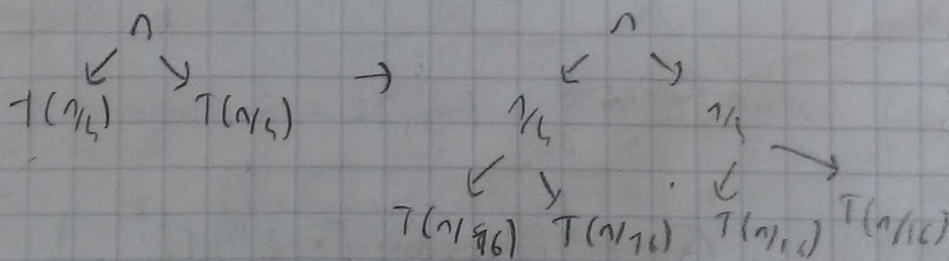 n n
T(n/4) T(n/4) → n/4 n/4
T(n/16) T(n/16) T(n/16) T(n/16)